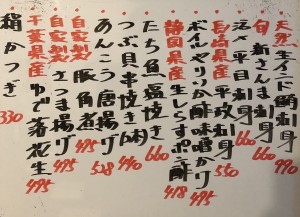 天然 生インド鮪刺身 990
旬 新さんま刺身 660
活〆平目刺身 660
長崎県産 平政刺身 550
ボイルヤリイカ酢味噌がけ 495
静岡県産 生しらすポン酢 418
たち魚塩焼き 660
つぶ貝串焼き(2本) 440
あんこう唐揚げ 528
自家製 豚角煮 495
自家製 さつま揚げ 495
千葉県産 ゆで落花生 495
絹かつぎ 330